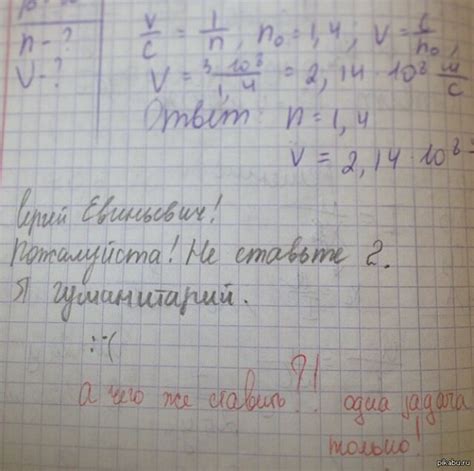 n - ?
V - ?
V/C = 1/n, n₀ = 1,4; V = C/n₀,
V = 3·10⁸/1,4 = 2,14 · 10⁸ м/с
Ответ: n = 1,4
V = 2,14 · 10⁸
Сергей Евгиньевич!
Пожалуйста! Не ставьте 2.
Я гуманитарий.
:'(
А чего же ставить?! одна задача
только!
pikabu.ru